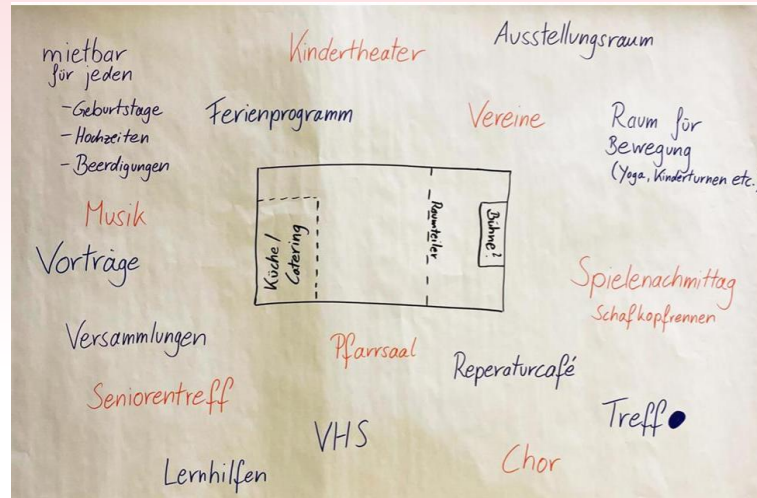 mietbar
für jeden
- Geburtstage
- Hochzeiten
- Beerdigungen
Kindertheater
Ausstellungsraum
Ferienprogramm
Vereine
Raum für
Bewegung
(Yoga, Kinderturnen etc.)
Musik
Vorträge
Küche/
Catering
Raumteiler
Bühne?
Spielenachmittag
Schafkopfrennen
Versammlungen
Pfarrsaal
Reperaturcafé
Seniorentreff
Treff
VHS
Chor
Lernhilfen